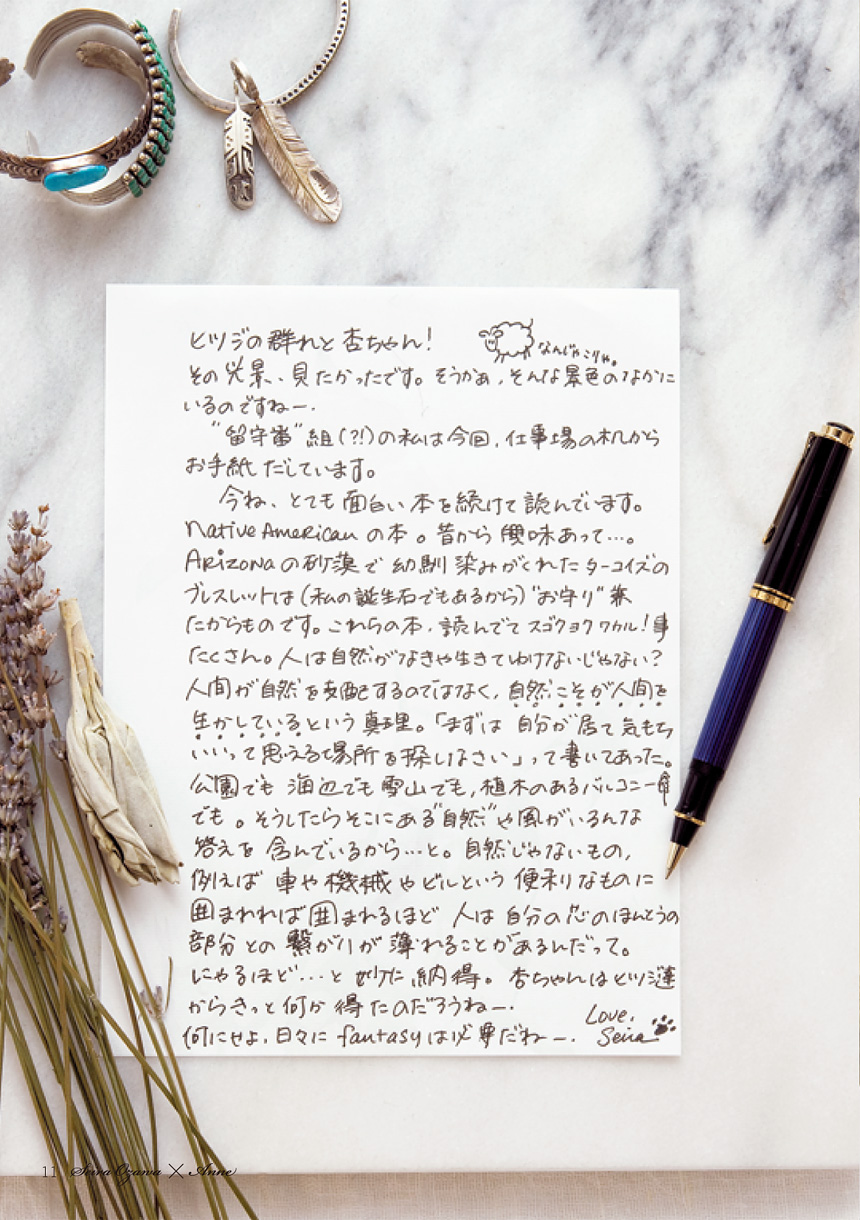 ヒツジの群れと杏ちゃん!
なんじゃこりゃ。
その光景、見たかったです。そうかぁ、そんな景色のなかに
いるのですねー.
"留守番"組(?!)の私は今回、仕事場の机から
お手紙だしています。
今ね、とても面白い本を続けて読んでいます。
Native American の本。昔から興味あって…。
Arizonaの砂漠で幼馴染みがくれたターコイズの
ブレスレットは(私の誕生石でもあるから)"お守り"兼
たからものです。これらの本、読んでてスゴクヨクワカル!事
たくさん。人は自然がなきゃ生きてゆけないじゃない?
人間が自然を支配するのではなく、自然こそが人間を
生かしているという真理。「まずは自分が居て気もち
いいって思える場所を探しなさい」って書いてあった。
公園でも海辺でも雪山でも、植木のあるバルコニー
でも。そうしたらそこにある"自然"や風がいろんな
答えを含んでいるから…と。自然じゃないもの、
例えば車や機械やビルという便利なものに
囲まれれば囲まれるほど人は自分の芯のほんとうの
部分との繋がりが薄れることがあるんだって。
にゃるほど…と妙に納得。杏ちゃんはヒツジ達
からきっと何か得たのだろうねー.
何にせよ、日々に fantasyは必要だねー.
Love,
Seira
11 Seira Ozawa × Anne